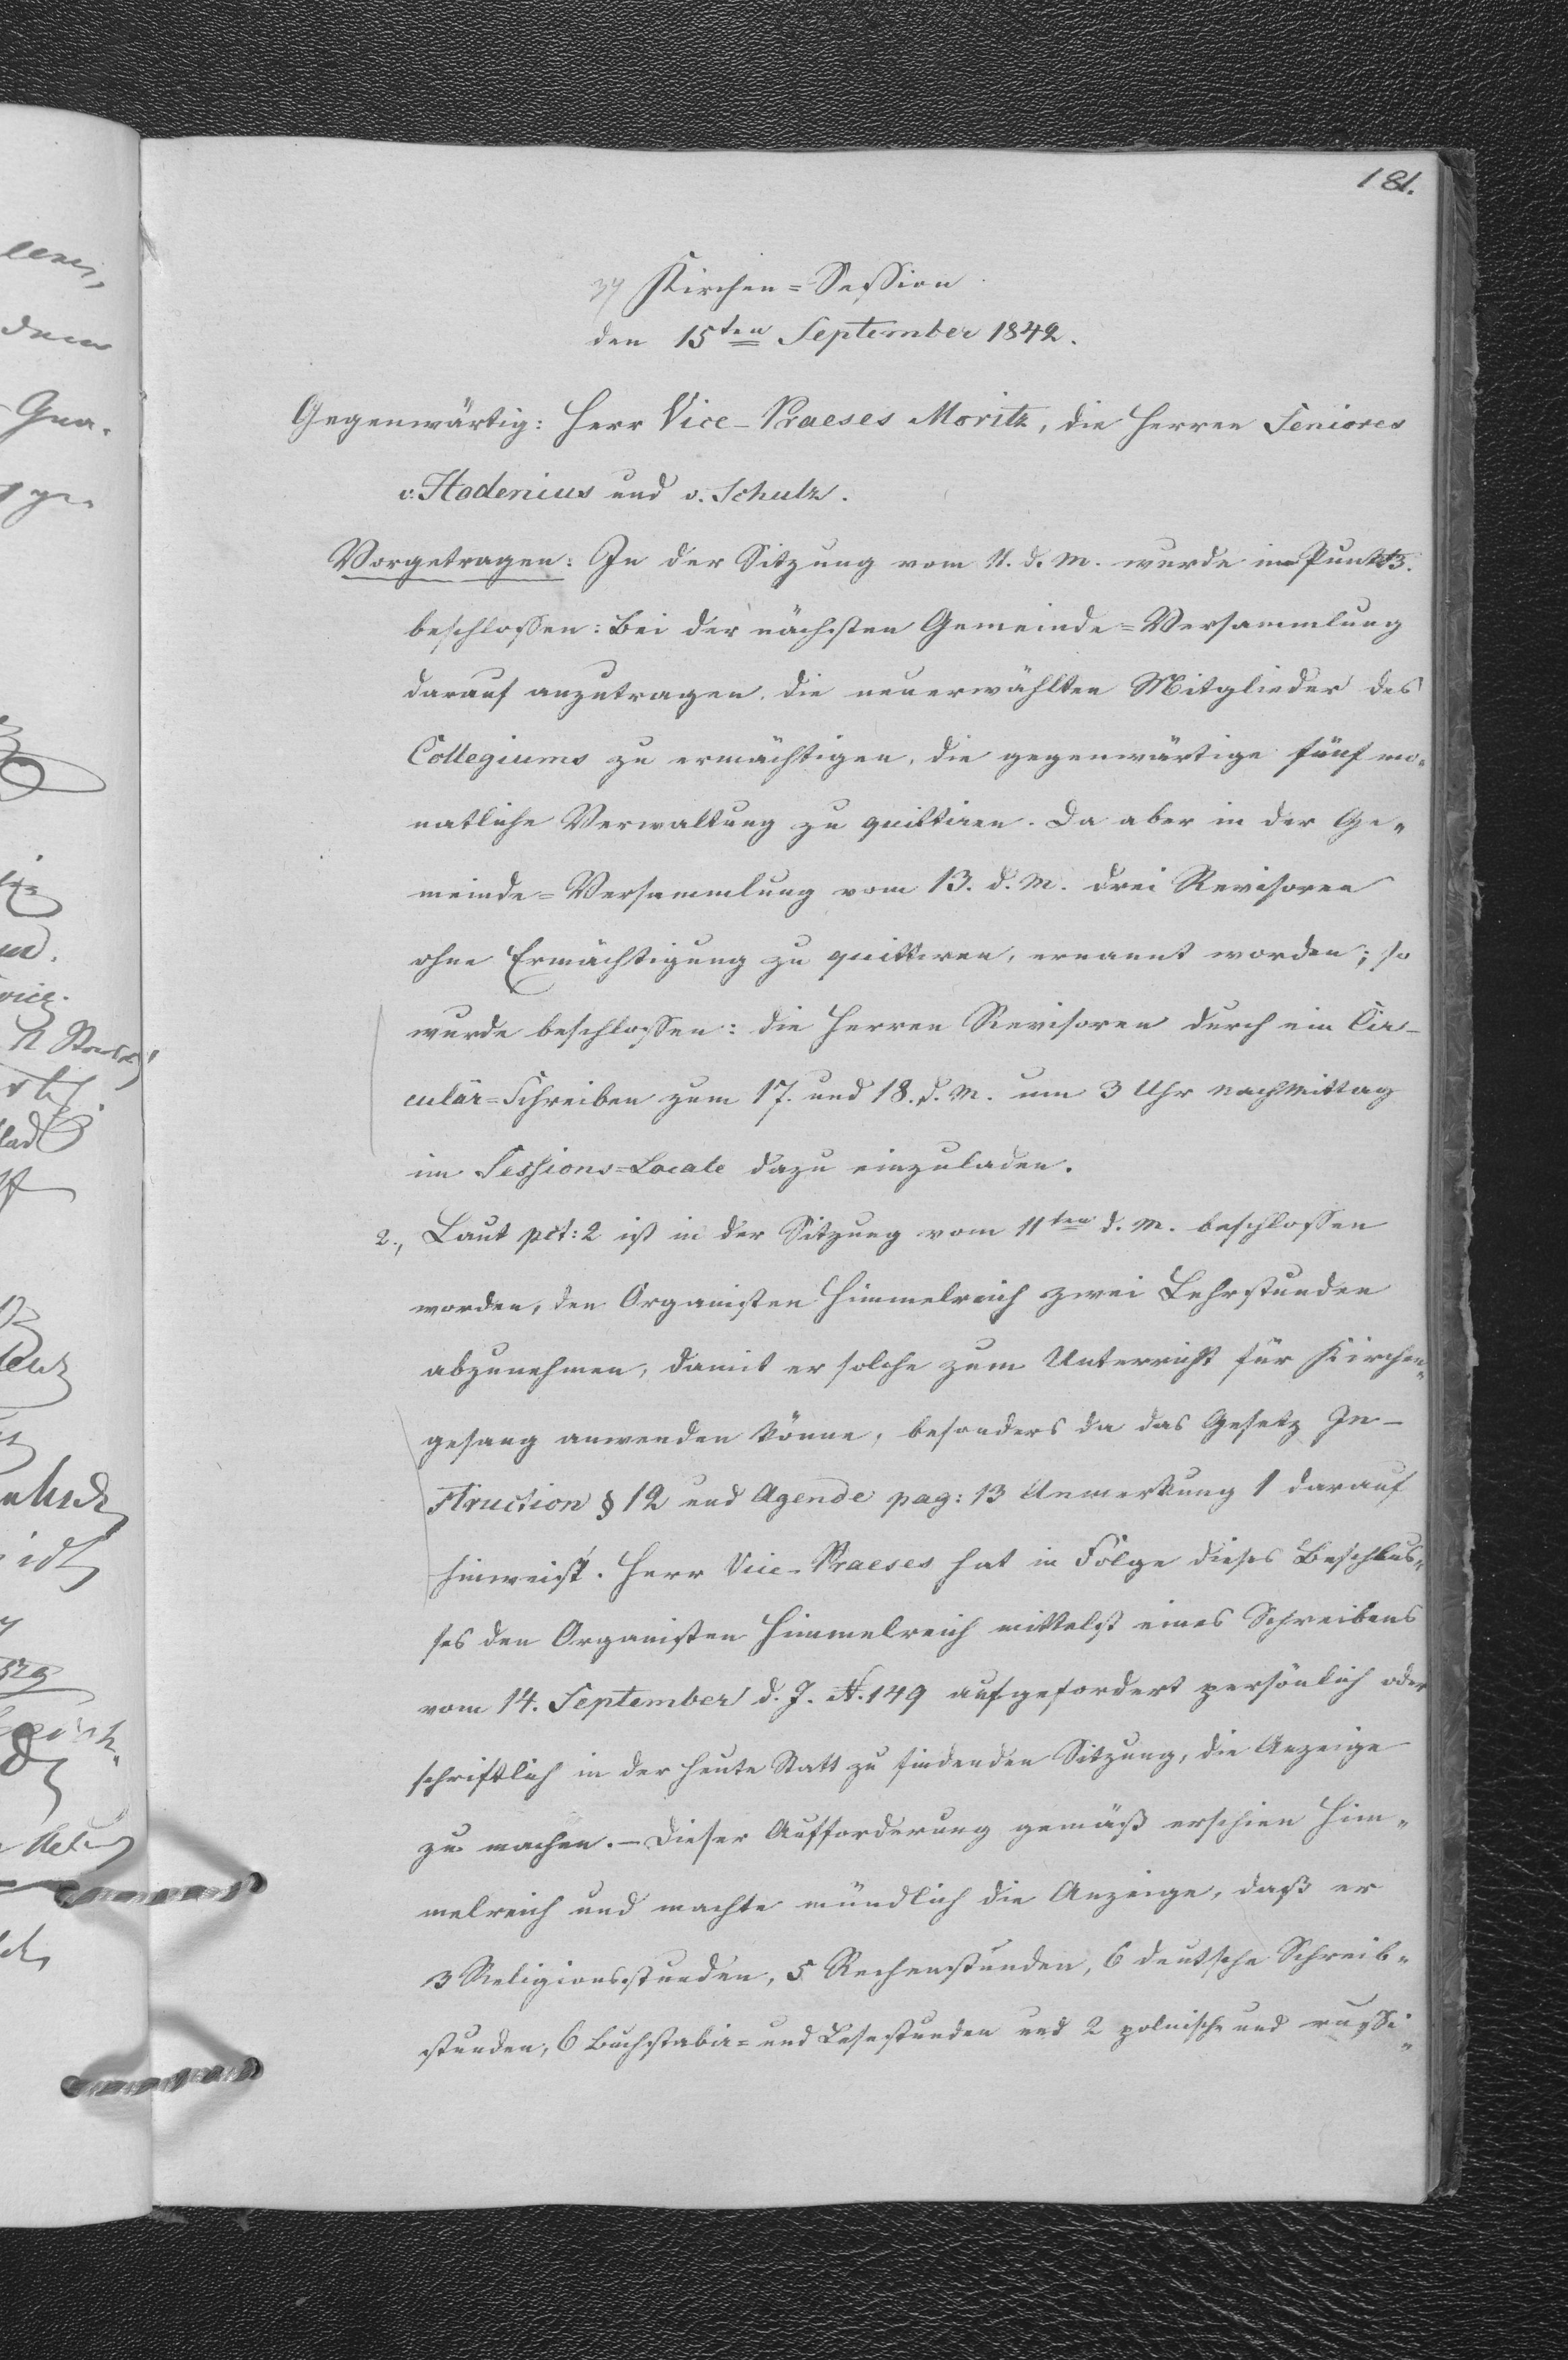 181.
34 Kirchen=Session
den 15ten September 1842.
Gegenwärtig: Herr Vice-Praeses Moritz, die Herren Seniores
v. Hodenius und v. Schulz.
Vorgetragen: In der Sitzung vom 11. d. M. wurde im Punkt 3.
beschlossen: Bei der nächsten Gemeinde=Versammlung
darauf anzutragen, die neuerwählten Mitglieder des
Collegiums zu ermächtigen, die gegenwärtige fünf mo-
natliche Verwaltung zu quittiren. Da aber in der Ge-
meinde=Versammlung vom 13. d. M. drei Revisoren
ohne Ermächtigung zu quittiren, ernannt worden; so
wurde beschlossen: die Herren Revisoren durch ein Cir-
culär=Schreiben zum 17. und 18. d. M. um 3 Uhr Nachmittag
im Sessions=Locale dazu einzuladen.
2., Laut pct: 2 ist in der Sitzung vom 11ten d. M. beschlossen
worden, den Organisten Himmelreich zwei Lehrstunden
abzunehmen, damit er solche zum Unterricht für Kirchen-
gesang anwenden könne, besonders da das Gesetz In-
struction § 12 und Agende pag: 13 Anmerkung 1 darauf
hinweist. Herr Vice-Praeses hat in Folge dieses Beschlus-
ses den Organisten Himmelreich mittelst eines Schreibens
vom 14. September d. J. N. 149 aufgefordert persönlich oder
schriftlich in der heute Statt zu findenden Sitzung, die Anzeige
zu machen. – Dieser Aufforderung gemäß erschien Him-
melreich und machte mündlich die Anzeige, daß er
3 Religionsstunden, 5 Rechenstunden, 6 deutsche Schreib-
stunden, 6 Buchstabir= und Lesestunden und 2 polnische und russi-